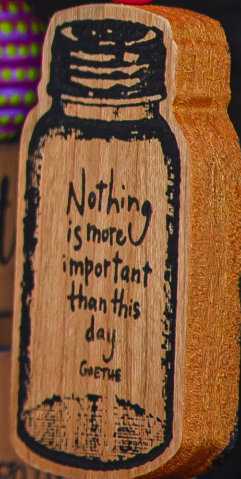 Nothing
is more
important
than this
day
GOETHE